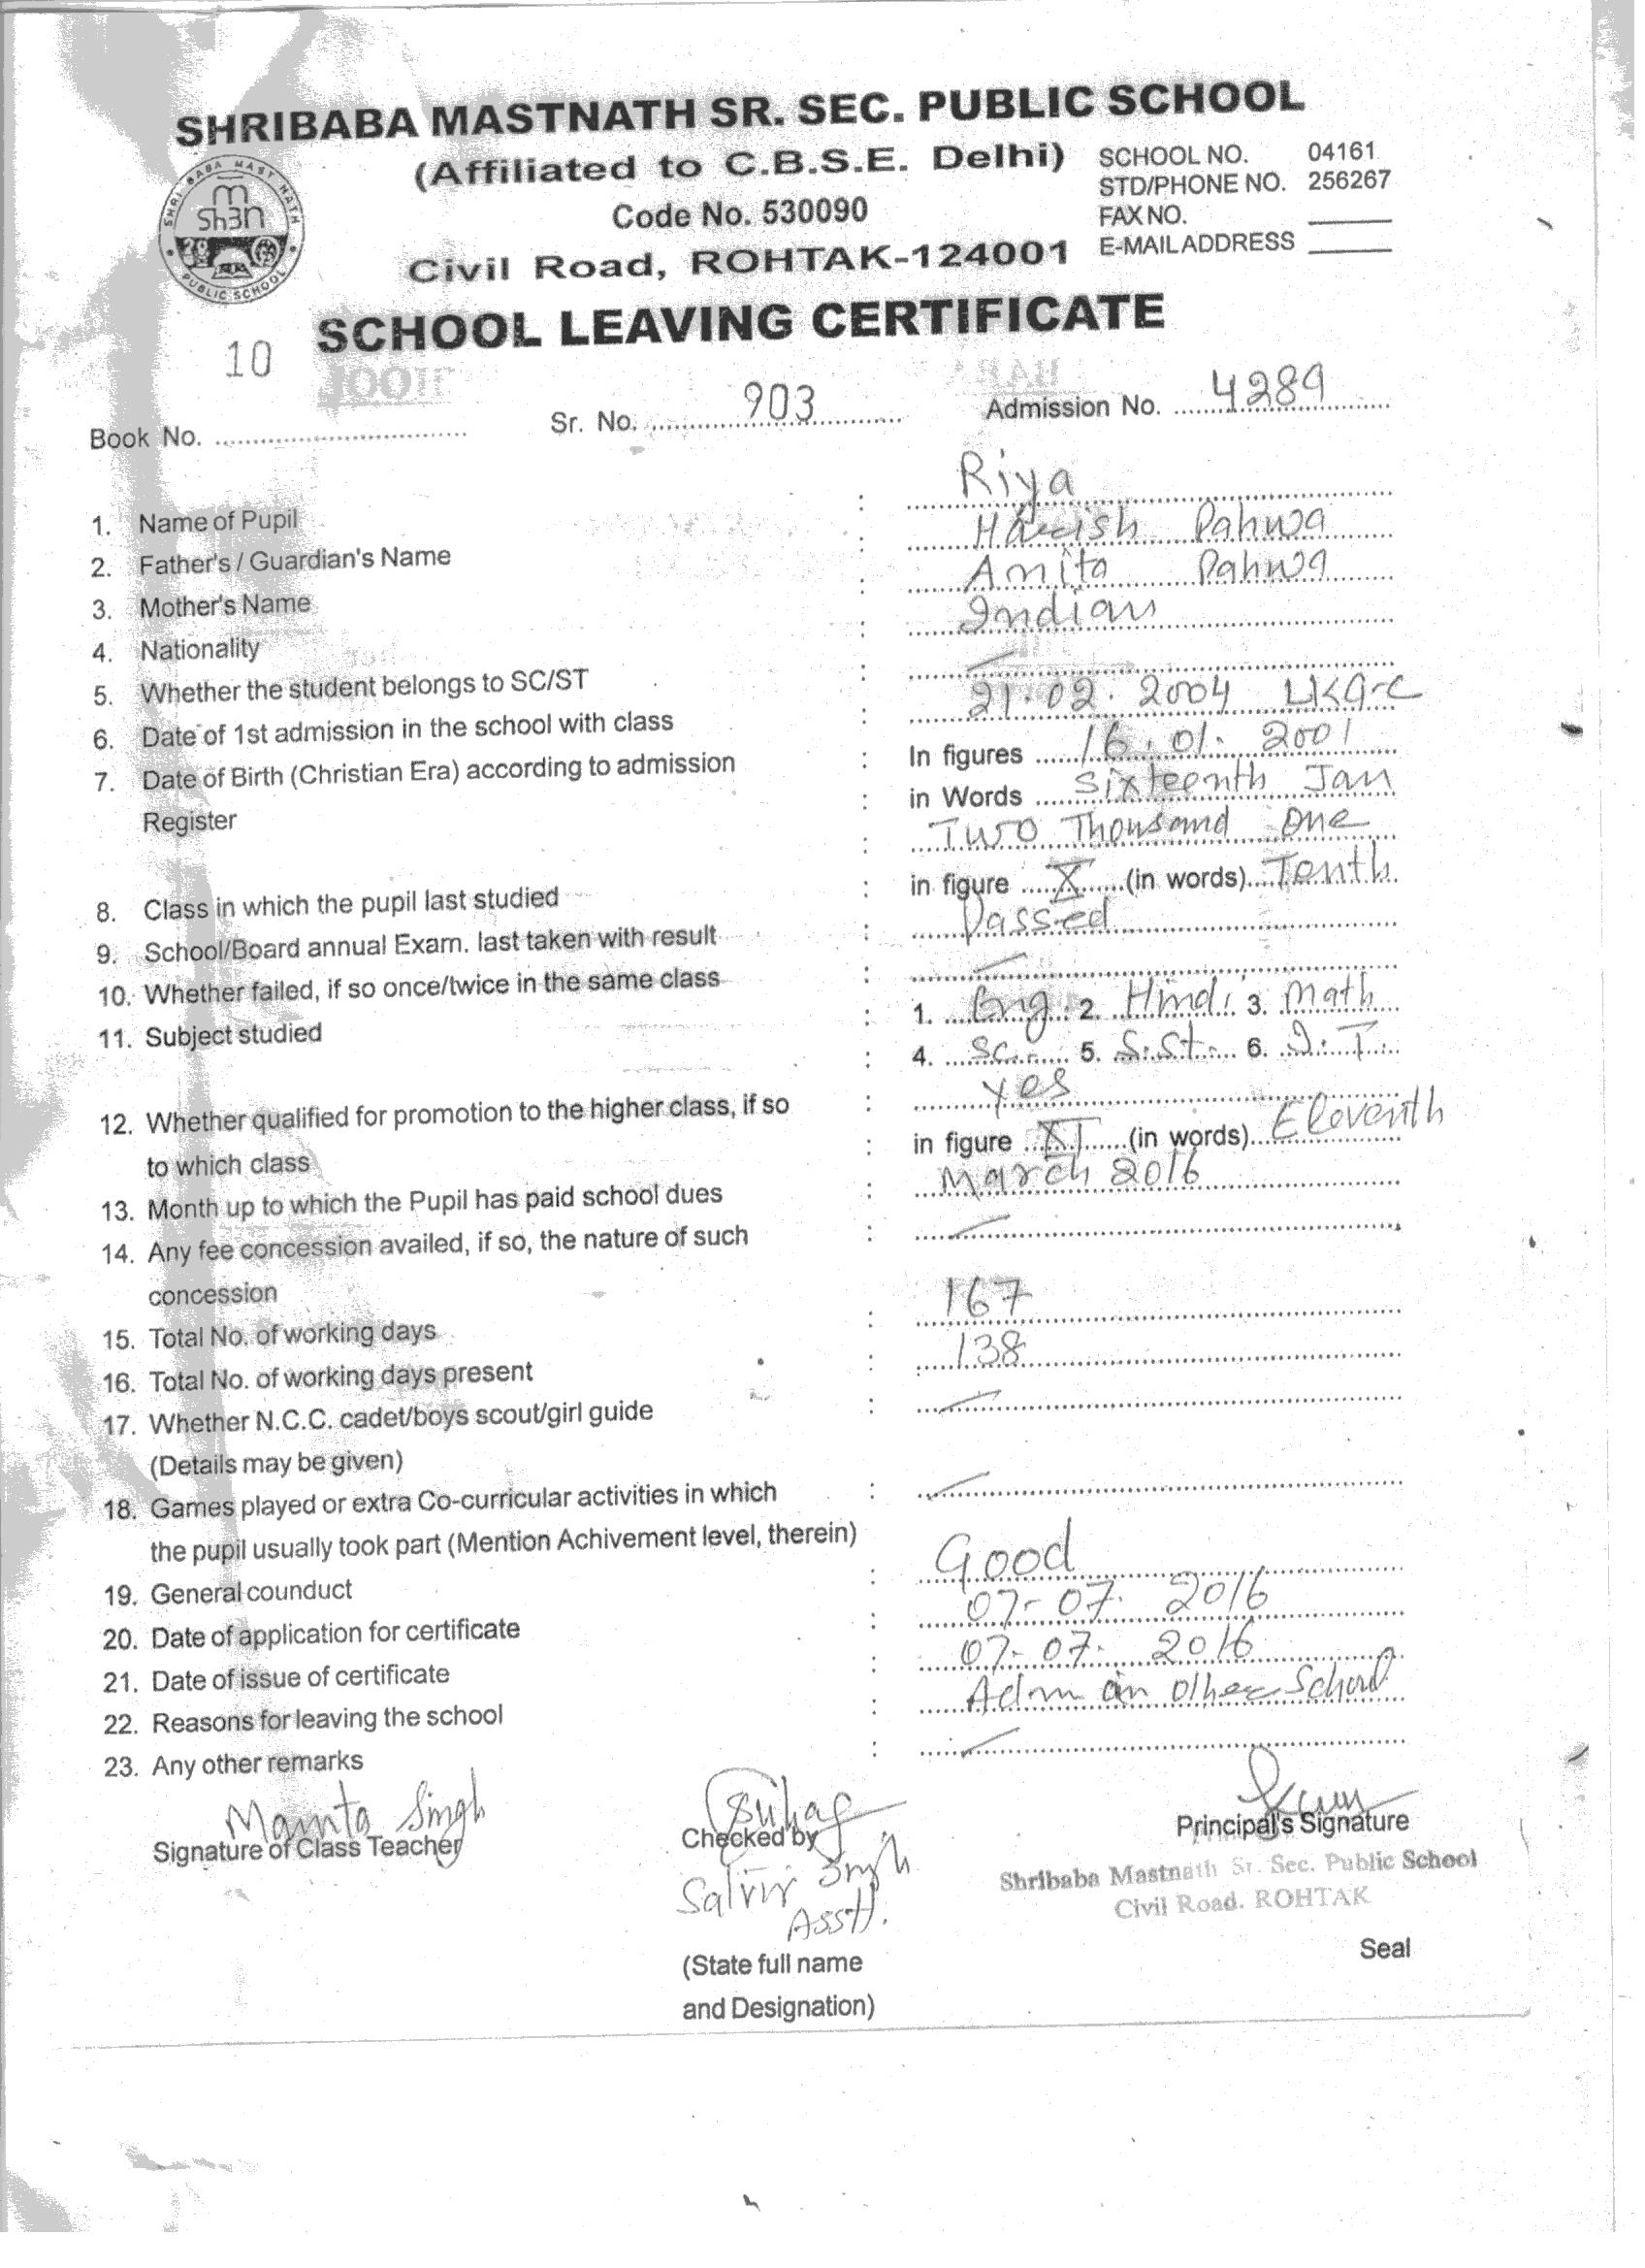 SHRIBABA MASTNATH SR. SEC. PUBLIC SCHOOL
(Affiliated to C.B.S.E. Delhi)
Code No. 530090
Civil Road, ROHTAK-124001
SCHOOL NO. 04161
STD/PHONE NO. 256267
FAX NO.
E-MAIL ADDRESS
SHRI BABA MAST NATH PUBLIC SCHOOL
SCHOOL LEAVING CERTIFICATE
Book No. 10 Sr. No. 903 Admission No. 4289
1. Name of Pupil : Riya
2. Father's / Guardian's Name : Harish Pahwa
3. Mother's Name : Amita Pahwa
4. Nationality : Indian
5. Whether the student belongs to SC/ST : —
6. Date of 1st admission in the school with class : 21.02.2004 LKG-C
7. Date of Birth (Christian Era) according to admission : In figures 16.01.2001
Register : in Words Sixteenth Jan
: Two Thousand One
8. Class in which the pupil last studied : in figure X (in words) Tenth
9. School/Board annual Exam. last taken with result : Passed
10. Whether failed, if so once/twice in the same class : —
11. Subject studied : 1. Eng 2. Hindi 3. Math
: 4. Sc. 5. S.St. 6. I.T.
12. Whether qualified for promotion to the higher class, if so : Yes
to which class : in figure XI (in words) Eleventh
13. Month up to which the Pupil has paid school dues : March 2016
14. Any fee concession availed, if so, the nature of such : —
concession
15. Total No. of working days : 167
16. Total No. of working days present : 138
17. Whether N.C.C. cadet/boys scout/girl guide : —
(Details may be given)
18. Games played or extra Co-curricular activities in which : —
the pupil usually took part (Mention Achivement level, therein)
19. General counduct : Good
20. Date of application for certificate : 07-07-2016
21. Date of issue of certificate : 07-07-2016
22. Reasons for leaving the school : Adm in other School
23. Any other remarks : —
Mamta Singh
Signature of Class Teacher
Checked by
Singh
Asstt.
(State full name
and Designation)
Principal's Signature
Shribaba Mastnath Sr. Sec. Public School
Civil Road. ROHTAK
Seal